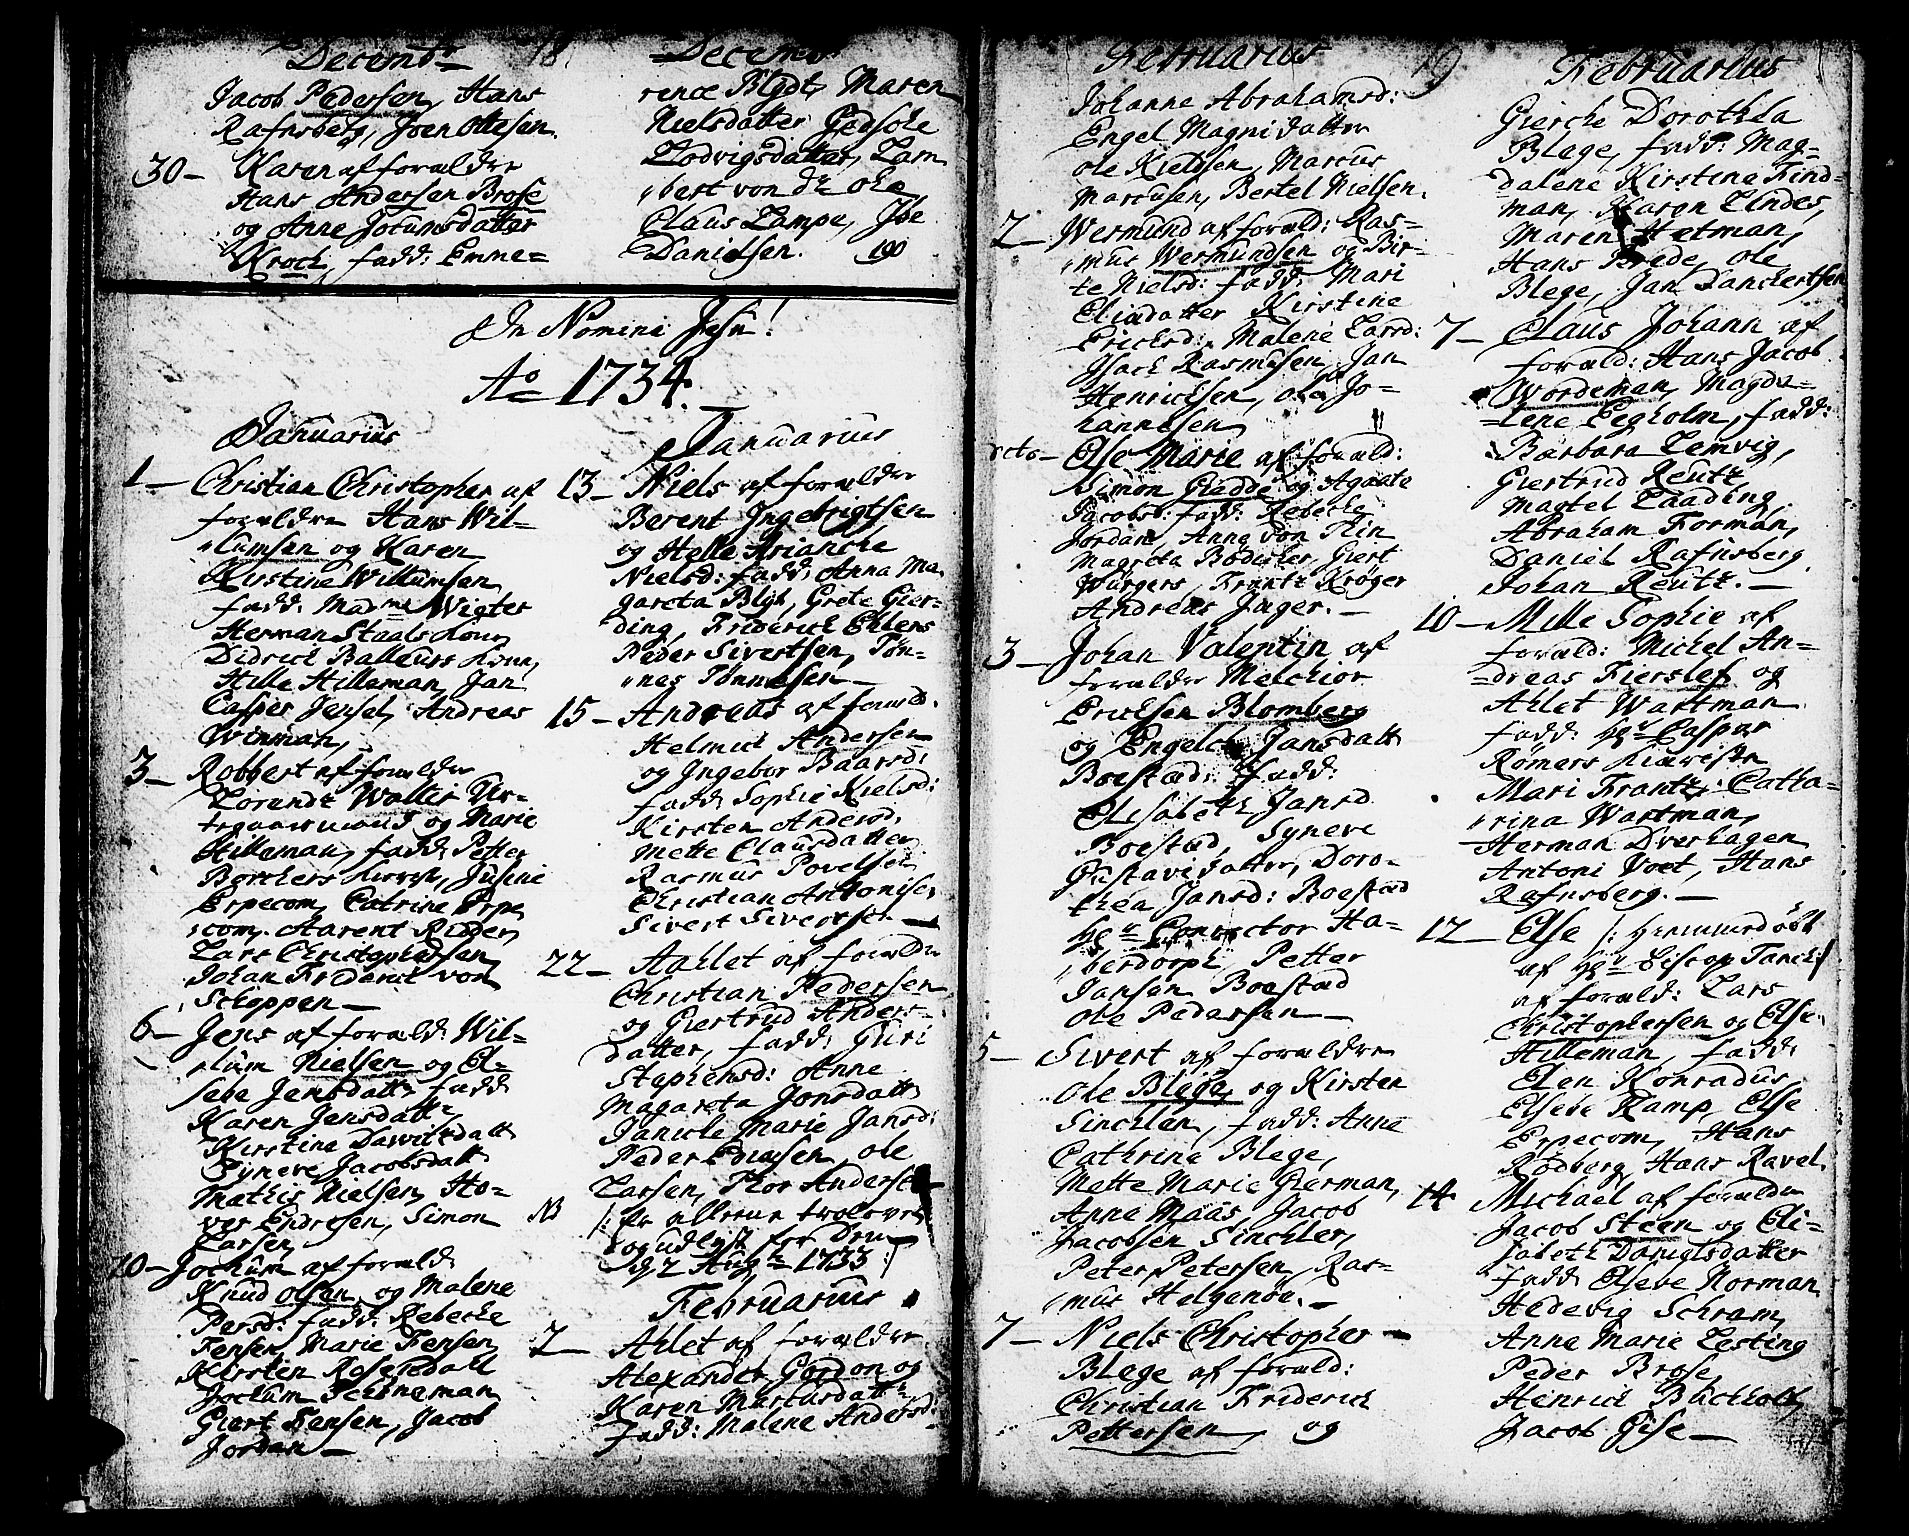 18
Decembr
Jacob Pedersen, Hans
Rafnsberg, Joen Ottesen.
30 - Karen af forældre
Hans Andersen Brose
og Anne Jochumsdatter
Krock, fadd: Emme=
Decembr
rence Blydt, Maren
Nielsdatter Gedsche
Lodvigsdatter, Lam
bert von der Ohe
Claus Lampe, Ibe
Danielsen. 190
In Nomine Jesu!
Ao 1734.
Januarius
1 - Christian Christopher af
forældre Hans Wil=
lumsen og Karen
Kirstine Willumsen
fadd. Madme Wigter
Herman Staals Kone,
Didrich Balleurs Kone,
Hille Hilleman, Jan
Casper Jensel, Andreas
Winman,
3 - Robbert af forældre
Lorentz Wolter
og Marie
Hilleman, fadd: Petter
Borchers Kierest, Jusine
Erpecom, Catrine Erpe
com. Aarent Ridder,
Lars Christophersen,
Johan Friderich von
Schoppen -
6 - Jens af foræld: Wil=
lum Nielsen og El=
sebe Jensdatter fadd
Karen Jensdattr,
Kirstine Davitsdattr
Syneve Jacobsdattr
Mathis Nielsen, Ho=
ver Endresen, Simon
Larsen
10 - Jochum af foræld:
Knud Olsen, og Malene
Persd: fadd: Rebecke
Fensen, Marie Fensen,
Kirsten Rosersdahl
Jochum Scheneman
Giert Fensen, Jacob
Jordan -
Januarius
13 - Niels af forældre
Berent Ingebrigtsen
og Helle Arianche
Nielsd: fadd: Anna Ma
gareta Blyt, Grete Gier=
ding, Friderich Ehlers
Peder Sivertsen, Tøn=
nes Tønnesen -
15 - Andreas af foræld.
Helmich Andersen
og Ingebor Baarsd:
fadd: Sophie Nielsd:
Kirsten Andersd,
Mette Clausdatter
Rasmus Povelsen
Christian Anthonisen
Sivert Sivertsen -
22 - Aahlet af forældre
Christian Pedersen,
og Giertrud Anders=
datter, fadd: Guri
Stephensd: Anne
Magareta Jonsdattr
Janiche Marie Jansd:
Peder Edwasen, Ole
Larsen, Thor Anderse
NB /: Er allene trolovet
og udlyst for Drm
d 2 Augu 1733 :/
Februarius
2 - Ahlet af forældre
Alexander Gordon og
Karen Marcusdattr,
fadd: Malene Andersd:
19
Februarius
Johanne Abrahamsd:
Engel Magnidatter
Ole Kieldsen, Marcus
Marcusen, Bertel Nielsen.
2 - Wermund af foræld: Ras=
mus Wermundsen og Bir=
te Nielsd: fadd: Mari
Eliædatter Kirstine
Ericksd:, Malene Larsd:
Isach Rasmusen, Jan
Henricksen, Ole Jo=
hannesen
dito - Else Marie af foræld:
Simon Gedde og Agaate
Jacobsd: fadd: Rebecke
Jordan, Anne von Rin
Magreta Bødicher, Giert
Würgers, Frantz Krøger
Andreas Jnger. -
3 - Johan Valentin af
forældre Melchior
Ericksen Blomberg
og Engelche Jansdattr
Boestad: fadd:
Elisabeth Jansd
Boestad, Syneve
Gustavidatter, Doro=
thea Jansd: Boestad
Hr Conrector Ha=
berdorph, Petter
Jansen Boestad
Ole Pedersen -
5 - Sivert af forældre
Ole Blege, og Kirsten
Sinchler, fadd: Anne
Cathrine Blege,
Mette Marie Gierman,
Anne Maas, Jacob
Jacobsen Sinchler,
Peter Petersen, Ras=
mus Helgenøe. -
7 - Niels Christopher -
Blege af foræld:
Christian Friderich
Pettersen, og
Februarius
Gierche Dorothea
Blege, fadd: Mag=
dalene Kirstine Find=
man, Karen Lindes,
Maren Hetman,
Hans Brede, Ole
Blege, Jan Danchertsen
7 - Claus Johann af
foræld: Hans Jacob
Wordeman, Magda=
lene Legholm, fadd:
Barbara Lemvig,
Giertrud Reutz
Magtel Laading,
Abraham Forman,
Daniel Rafnsberg
Johan Reutz. -
10 - Mille Sophie af
foræld: Michel An=
dreas Fierslef og
Ahlet Wartman
fadd: Hr Casper
Rømers Kiæreste
Mari Frantz, Catha=
rina Wartman,
Herman Dverhagen
Antoni Voet, Hans
Rafnsberg. -
12 - Else /: hiemmedøbt
af Hr Biscop Tanck:/
af foræld: Lars
Christophersen og Else
Hilleman, fadd:
Elen Konradus,
Elsebe Kamp, Else
Erpecom, Hans
Rødberg, Hans Ravel.
14 Michael af forældre
Jacob Steen og Eli=
sabeth Danielsdatter
fadd: Elsebe Norman
Hedevig Schram,
Anne Marie Lesting
Peder Brose,
Henrich Buchholt,
Jacob Gise -